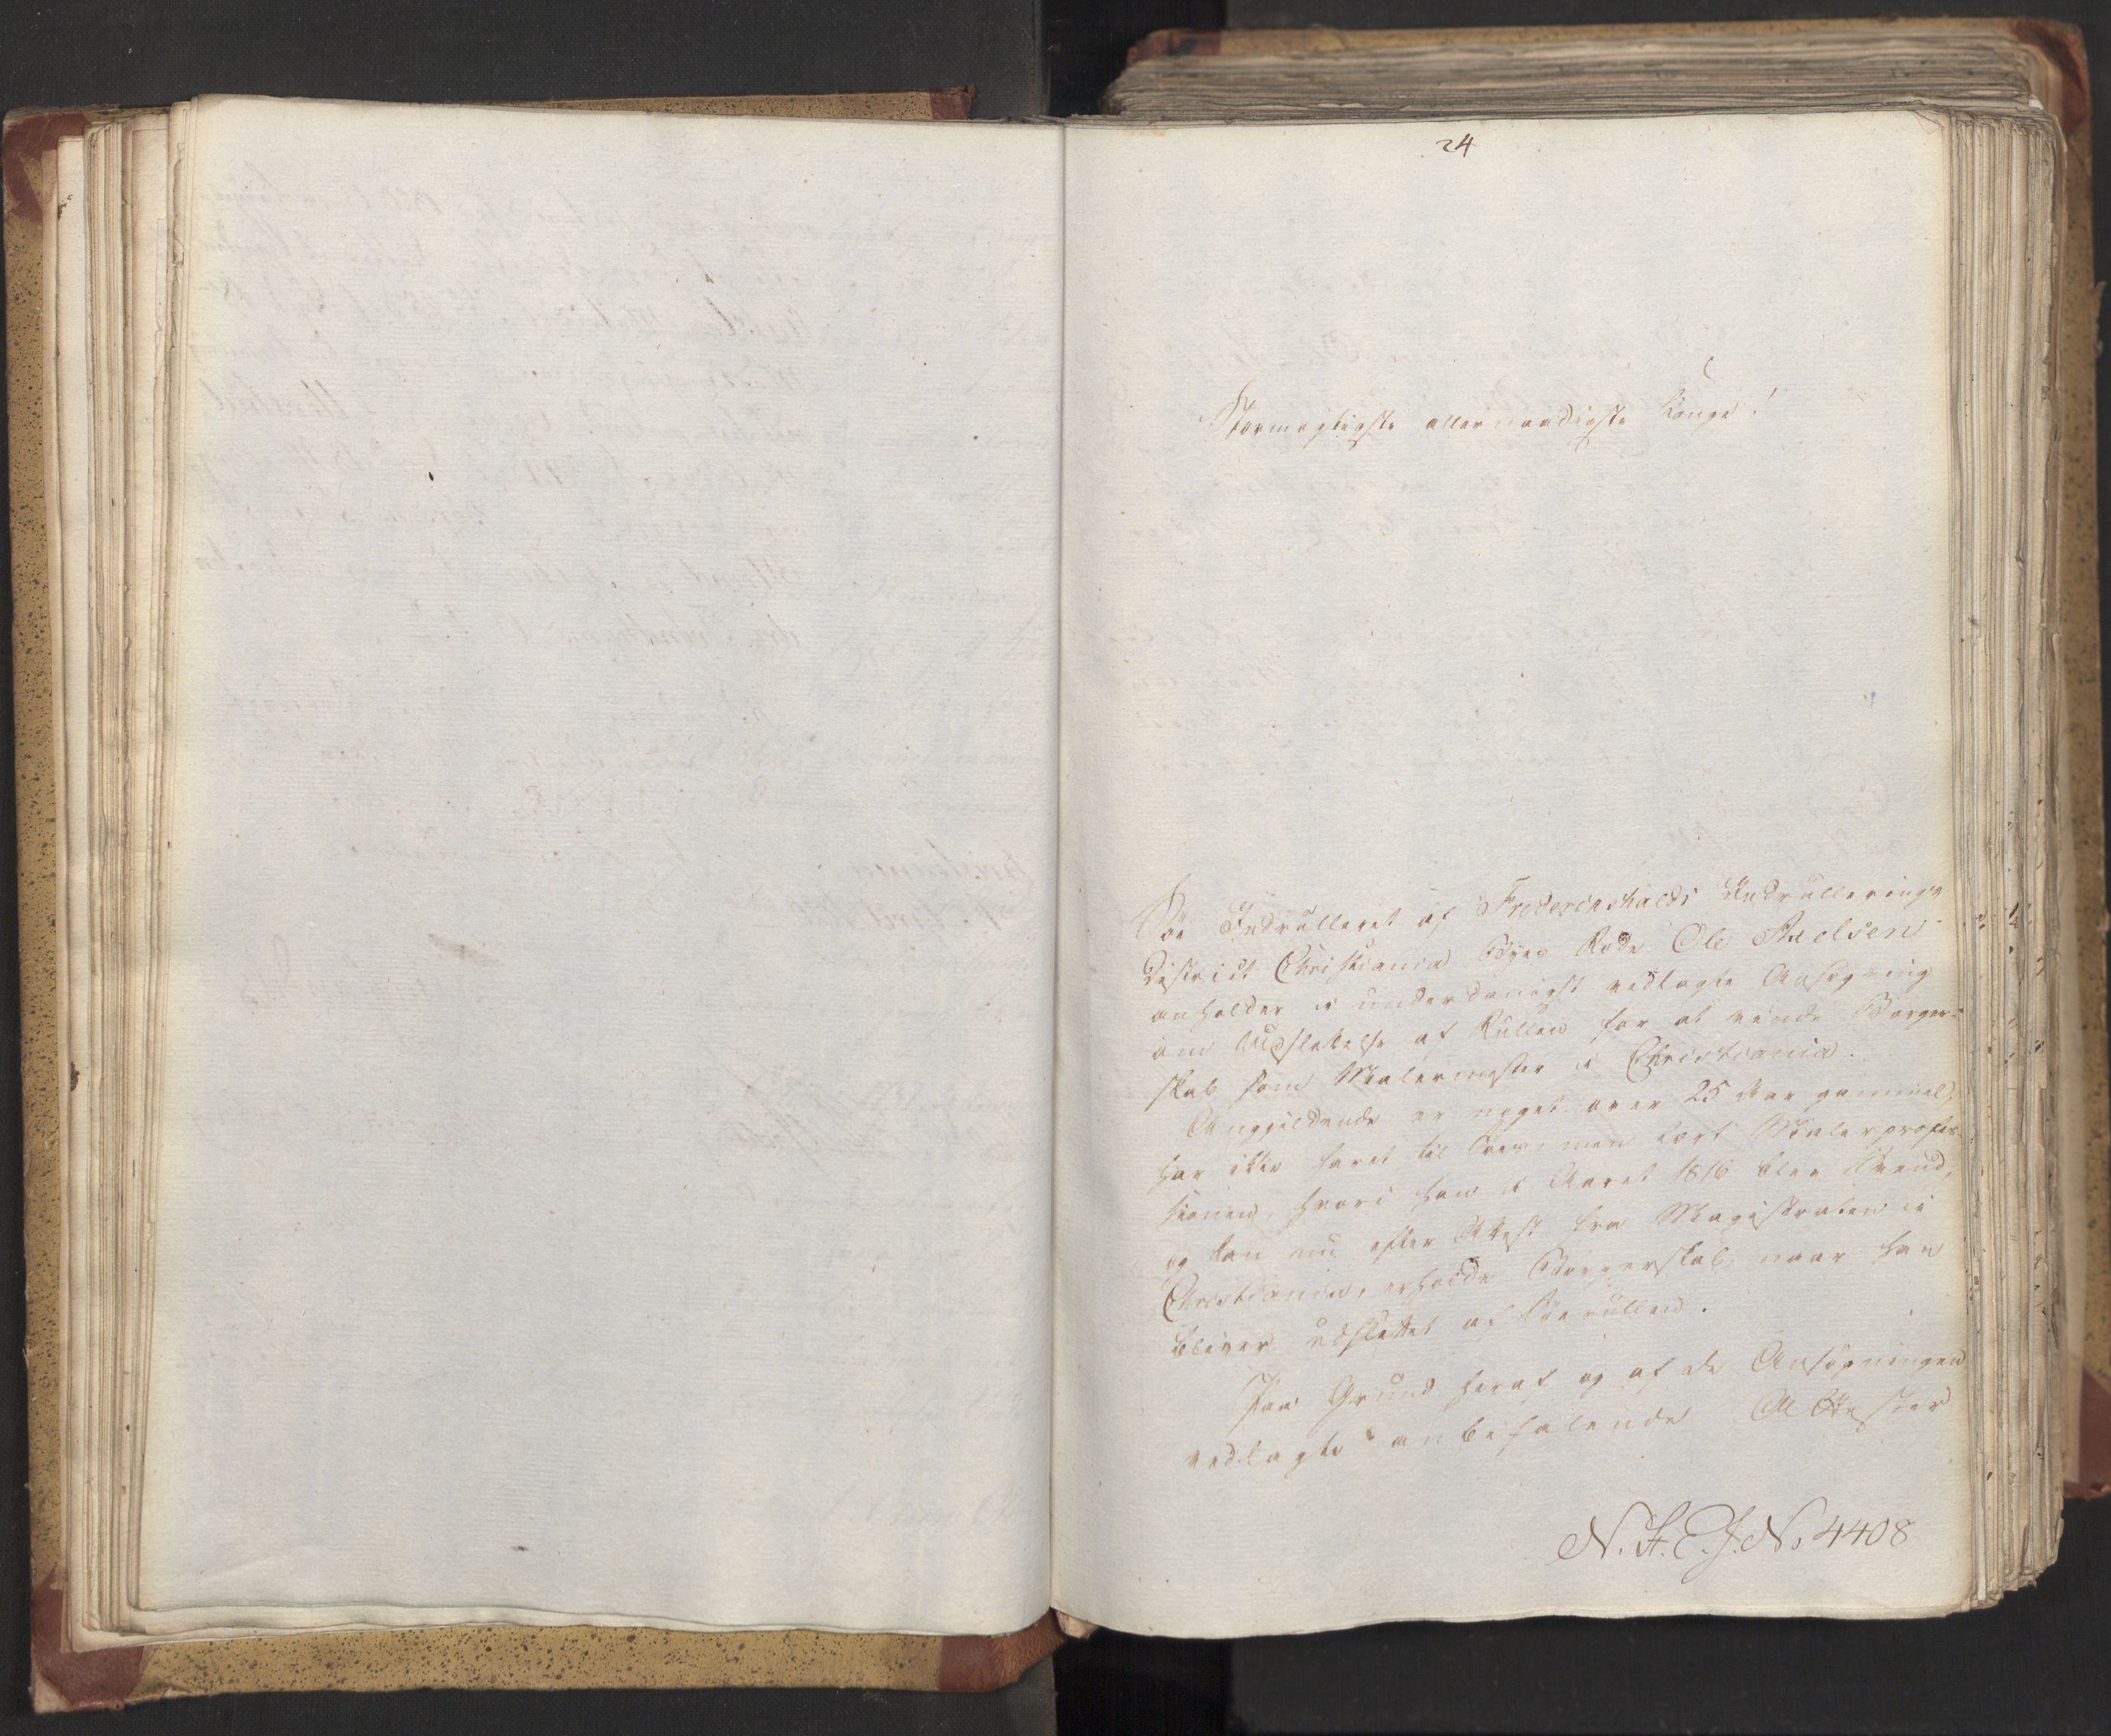 24
Stormægtigste allernaadigste Konge!
Søe Indrulleret af Fredericshalds Indrullerings
District Christiania Byes Rode Ole Axelsen
anholder i underdanigst vedlagte Ansøgning
om Udslettelse af Rullen for at vinde Borger-
skab som Malermester i Christiania.
Angjeldende er noget over 25 Aar gammel,
har ikke faret til Søes, men lært Malerprofes-
sionen, hvori han i Aaret 1816 blev Svend,
og kan nu efter Attest fra Magistraten i
Christiania, erholde Borgerskab naar han
bliver udslettet af Søerullen.
Paa Grund heraf og af de Ansøgningen
vedlagte anbefalende Attester
N. A. E. J. No 4408